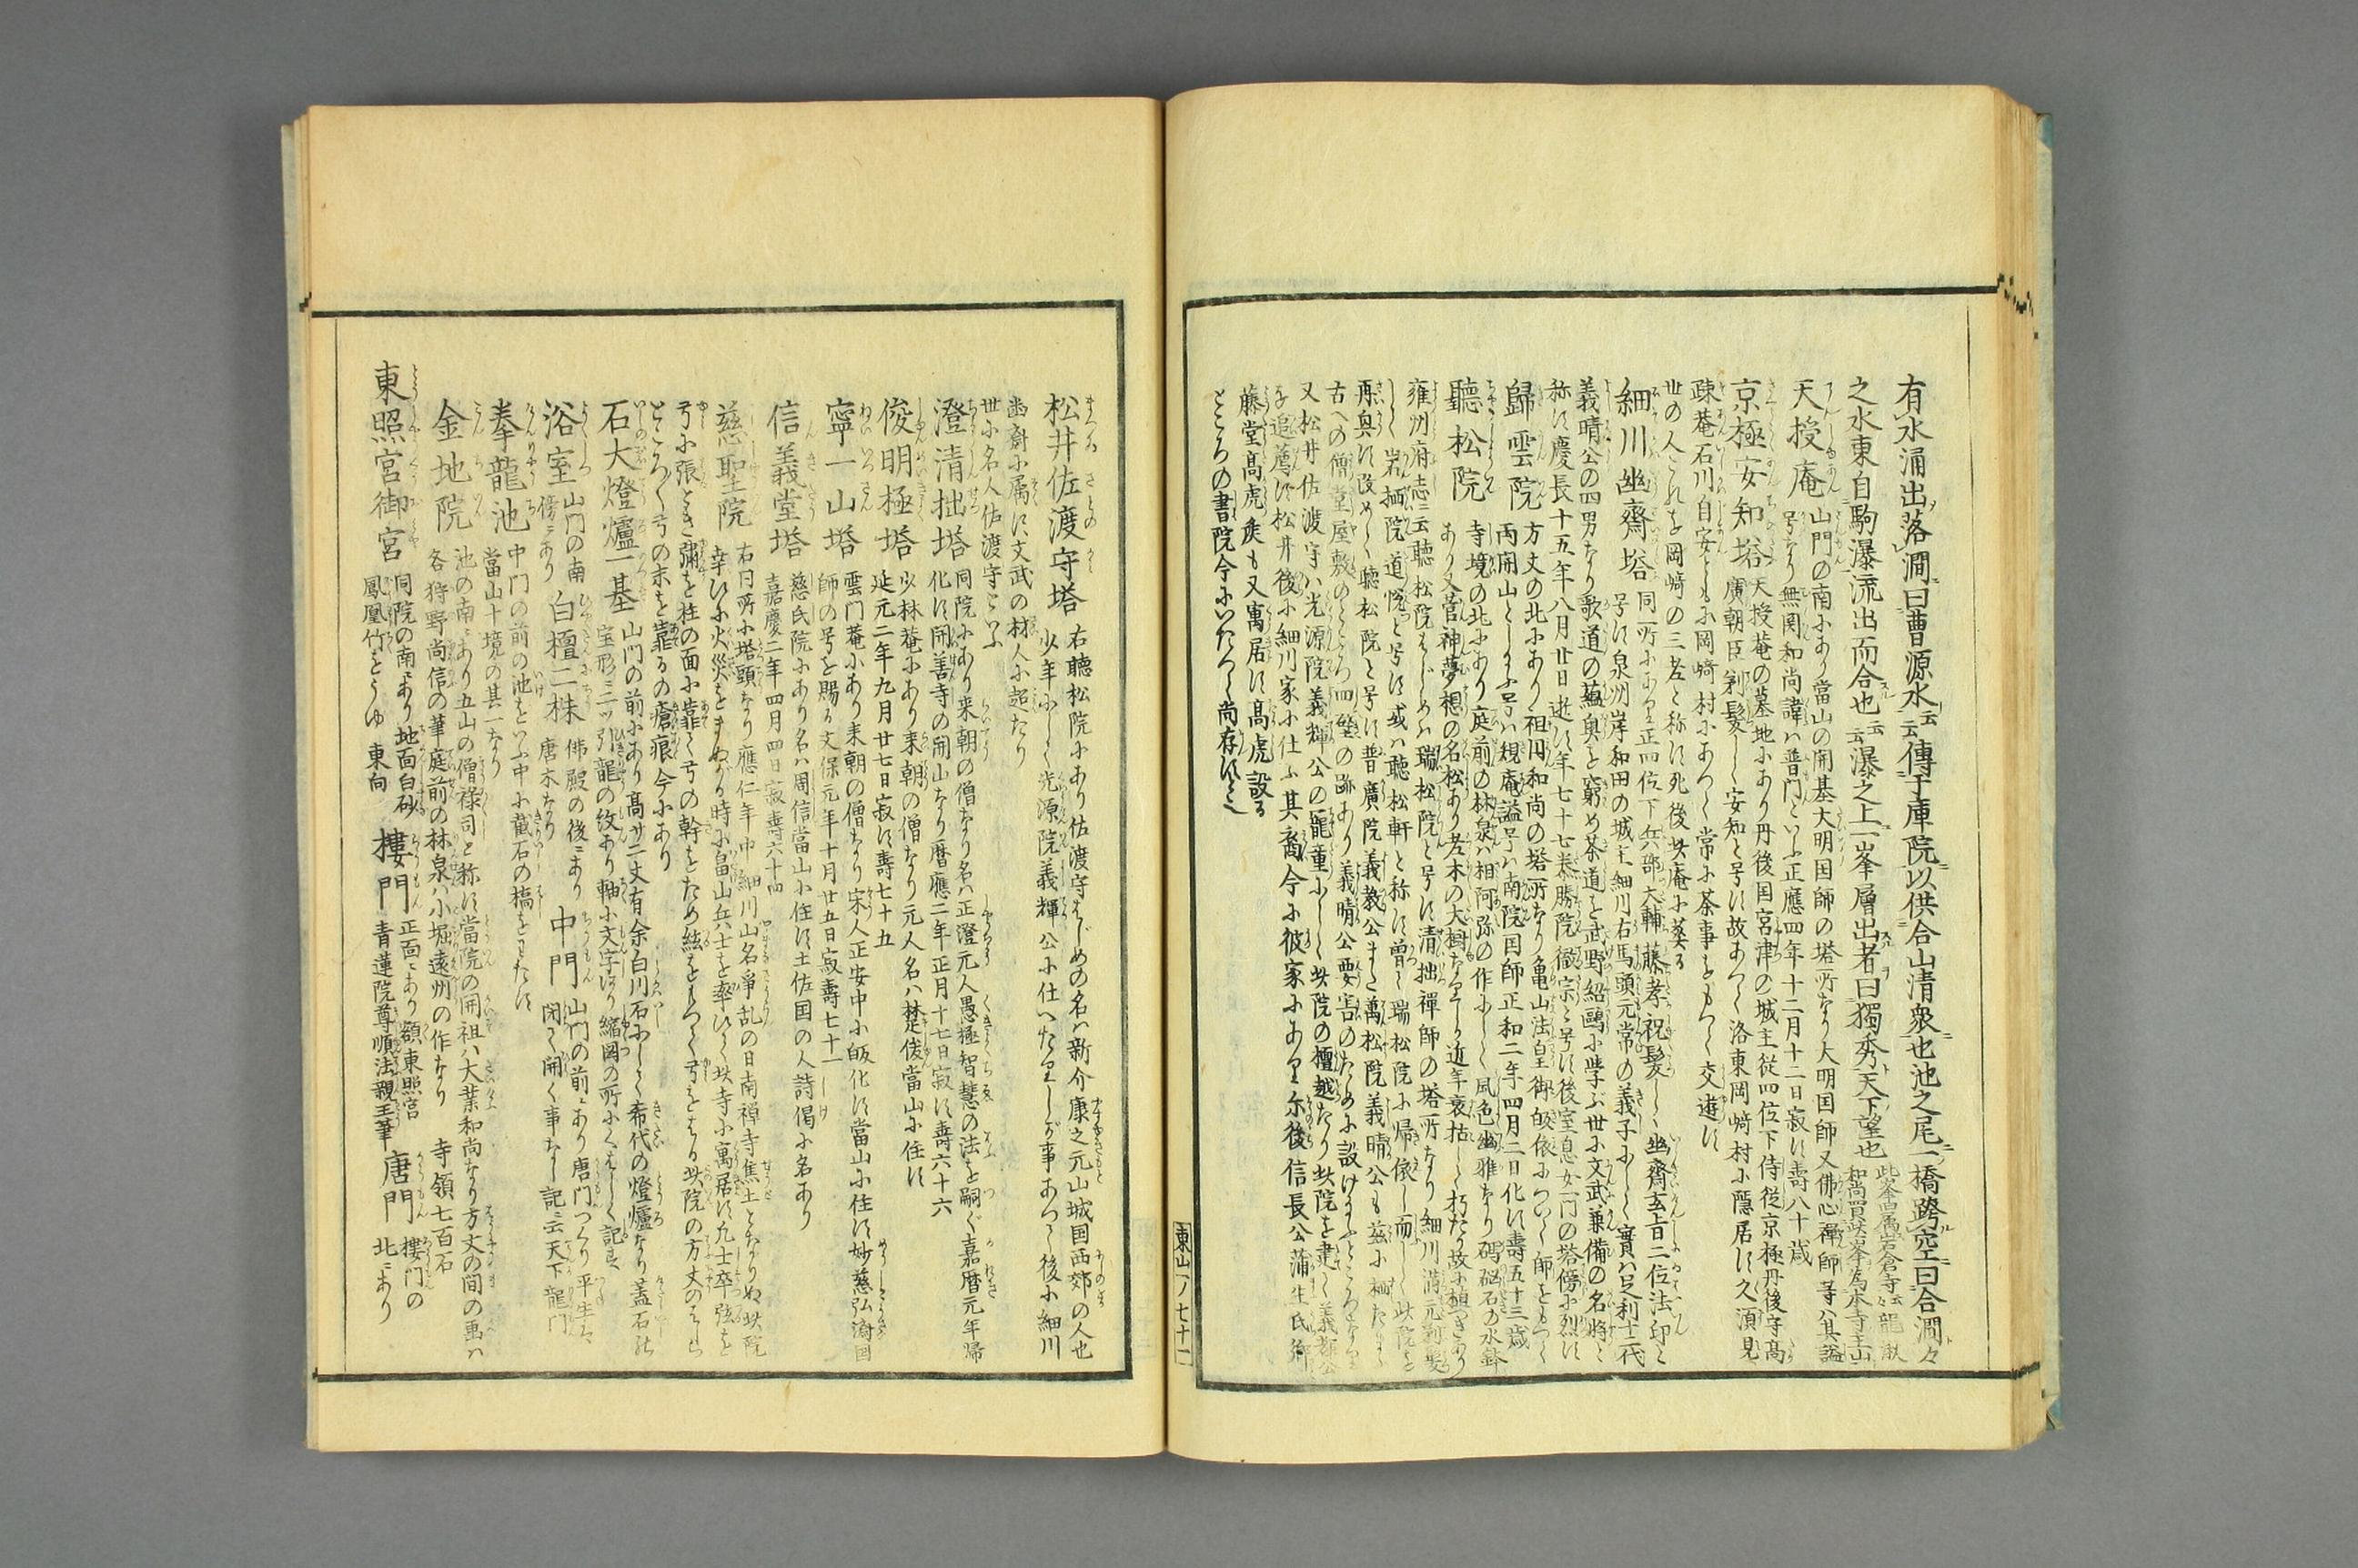 有水涌出落澗曰曹源水云傳于庫院以供合山清衆也池之尾一橋跨空曰合澗々
之水東自駒瀑流出而合也云云瀑之上一峯層出者曰獨秀天下望也
天授庵
山門の南にあり當山の開基大明国師の塔所なり大明国師又佛心禪師等ハ其謚
号なり無関和尚諱ハ普門といふ正應四年十二月十二日寂す壽八十歳
京極安知塔
天授菴の墓地にあり丹後国宮津の城主従四位下侍従京極丹後守髙
廣朝臣剃髪して安知と号す故あつて洛東岡﨑村に隠居す久須見
疎菴石川自安ともに岡﨑村にあつて常に茶事をもつて交遊す
世の人これを岡﨑の三老と称す死後此庵に葬る
細川幽齋塔
同所にあり正四位下兵部大輔藤孝祝髪して幽齋玄旨二位法印と
号す泉州岸和田の城主細川右馬頭元常の義子にして實ハ足利十二代
義晴公の四男なり歌道の蘊奥を窮め茶道を武野紹鷗に学ぶ世に文武兼備の名將と
称す慶長十五年八月廿日逝す年七十七泰勝院徹宗と号す後室息女一門の塔傍に列す
歸雲院
方丈の北にあり祖円和尚の塔所なり亀山法皇御皈依によつて師をもつて
両開山としまふ号ハ規庵謚号ハ南院国師正和二年四月二日化す壽五十三歳
聽松院
寺境の北にあり庭前の林泉ハ相阿弥の作にして風色幽雅なり碼碯石の水鉢
あり又菅神夢想の名松あり老木の大樹なりしが近年衰枯して朽たり故に植つぎあり
雍州府志云聽松院はじめハ瑞松院と号す清拙禪師の塔所なり細川満元剃髪
して岩栖院道悦と号す或ハ聽松軒と称す曽て瑞松院に帰依し而して此院を
再興す改めて聽松院と号す普廣院義教公また萬松院義晴公も茲に栖たまふ
古への僧堂屋敷のところ四壁の跡あり義晴公要害のために設けまふところなり
又松井佐渡守ハ光源院義輝公の寵童にして此院の檀越たり此院を建て義輝公
を追薦す松井後に細川家に仕ふ其裔今に彼家にあり尓後信長公蒲生氏郷
藤堂髙虎矦も又寓居す髙虎設る
ところの書院今にいたつて尚存すと
東山一ノ七十二
松井佐渡守塔
右聽松院にあり佐渡守はじめの名ハ新介康之元山城国西郊の人也
少年にして光源院義輝公に仕へたりしが事あつて後に細川
幽齋に属す文武の材人に超たり
世に名人佐渡守といふ
澄清拙塔
同院にあり来朝の僧なり名ハ正澄元人愚極智慧の法を嗣ぐ嘉暦元年歸
化す開善寺の開山なり暦應二年正月十七日寂す壽六十六
俊明極塔
少林菴にあり来朝の僧なり元人名ハ楚俊當山に住す
延元二年九月廿七日寂す壽七十五
寧一山塔
雲門菴にあり来朝の僧なり宋人正安中に皈化す當山に住す妙慈弘濟国
師の号を賜る文保元年十月廿五日寂壽七十一
信義堂塔
慈氏院にあり名ハ周信當山に住す土佐国の人詩偈に名あり
嘉慶二年四月四日寂壽六十四
慈聖院
右同所に塔頭なり應仁年中細川山名爭乱の日南禅寺焦土となりぬ此院
幸ひに火災をまぬがる時に畠山兵士を率ひて此寺に寓居す凡士卒弦を
弓に張とき彌を柱の面に靠て弓の幹をため絃をもつて弓をはる此院の方丈のはしら
ところ〳〵弓の末を靠るの瘡痕今にあり
石大燈爐一基
山門の前にあり髙サ二丈有余白川石にして希代の燈爐なり蓋石の
宝形ニツ引龍の紋あり軸に文字ほり縮図の所にくはしく記す
浴室
山門の南
傍ニあり
白檀二株
佛殿の後ニあり
唐木なり
中門
山門の前ニあり唐門つくり平生ハ
閉て開く事なし記ニ云天下龍門
拳龍池
中門の前の池をいふ中に截石の橋をわたす
當山十境の其一なり
金地院
池の南ニあり五山の僧祿司と称す當院の開祖ハ大業和尚なり方丈の間の画ハ
各狩野尚信の筆庭前の林泉ハ小堀遠州の作なり　寺領七百石
東照宮御宮
同院の南ニあり地面白砂
鳳凰竹をうゆ　東向
樓門
正面ニあり額東照宮
青蓮院尊順法親王筆
唐門
樓門の
北ニあり